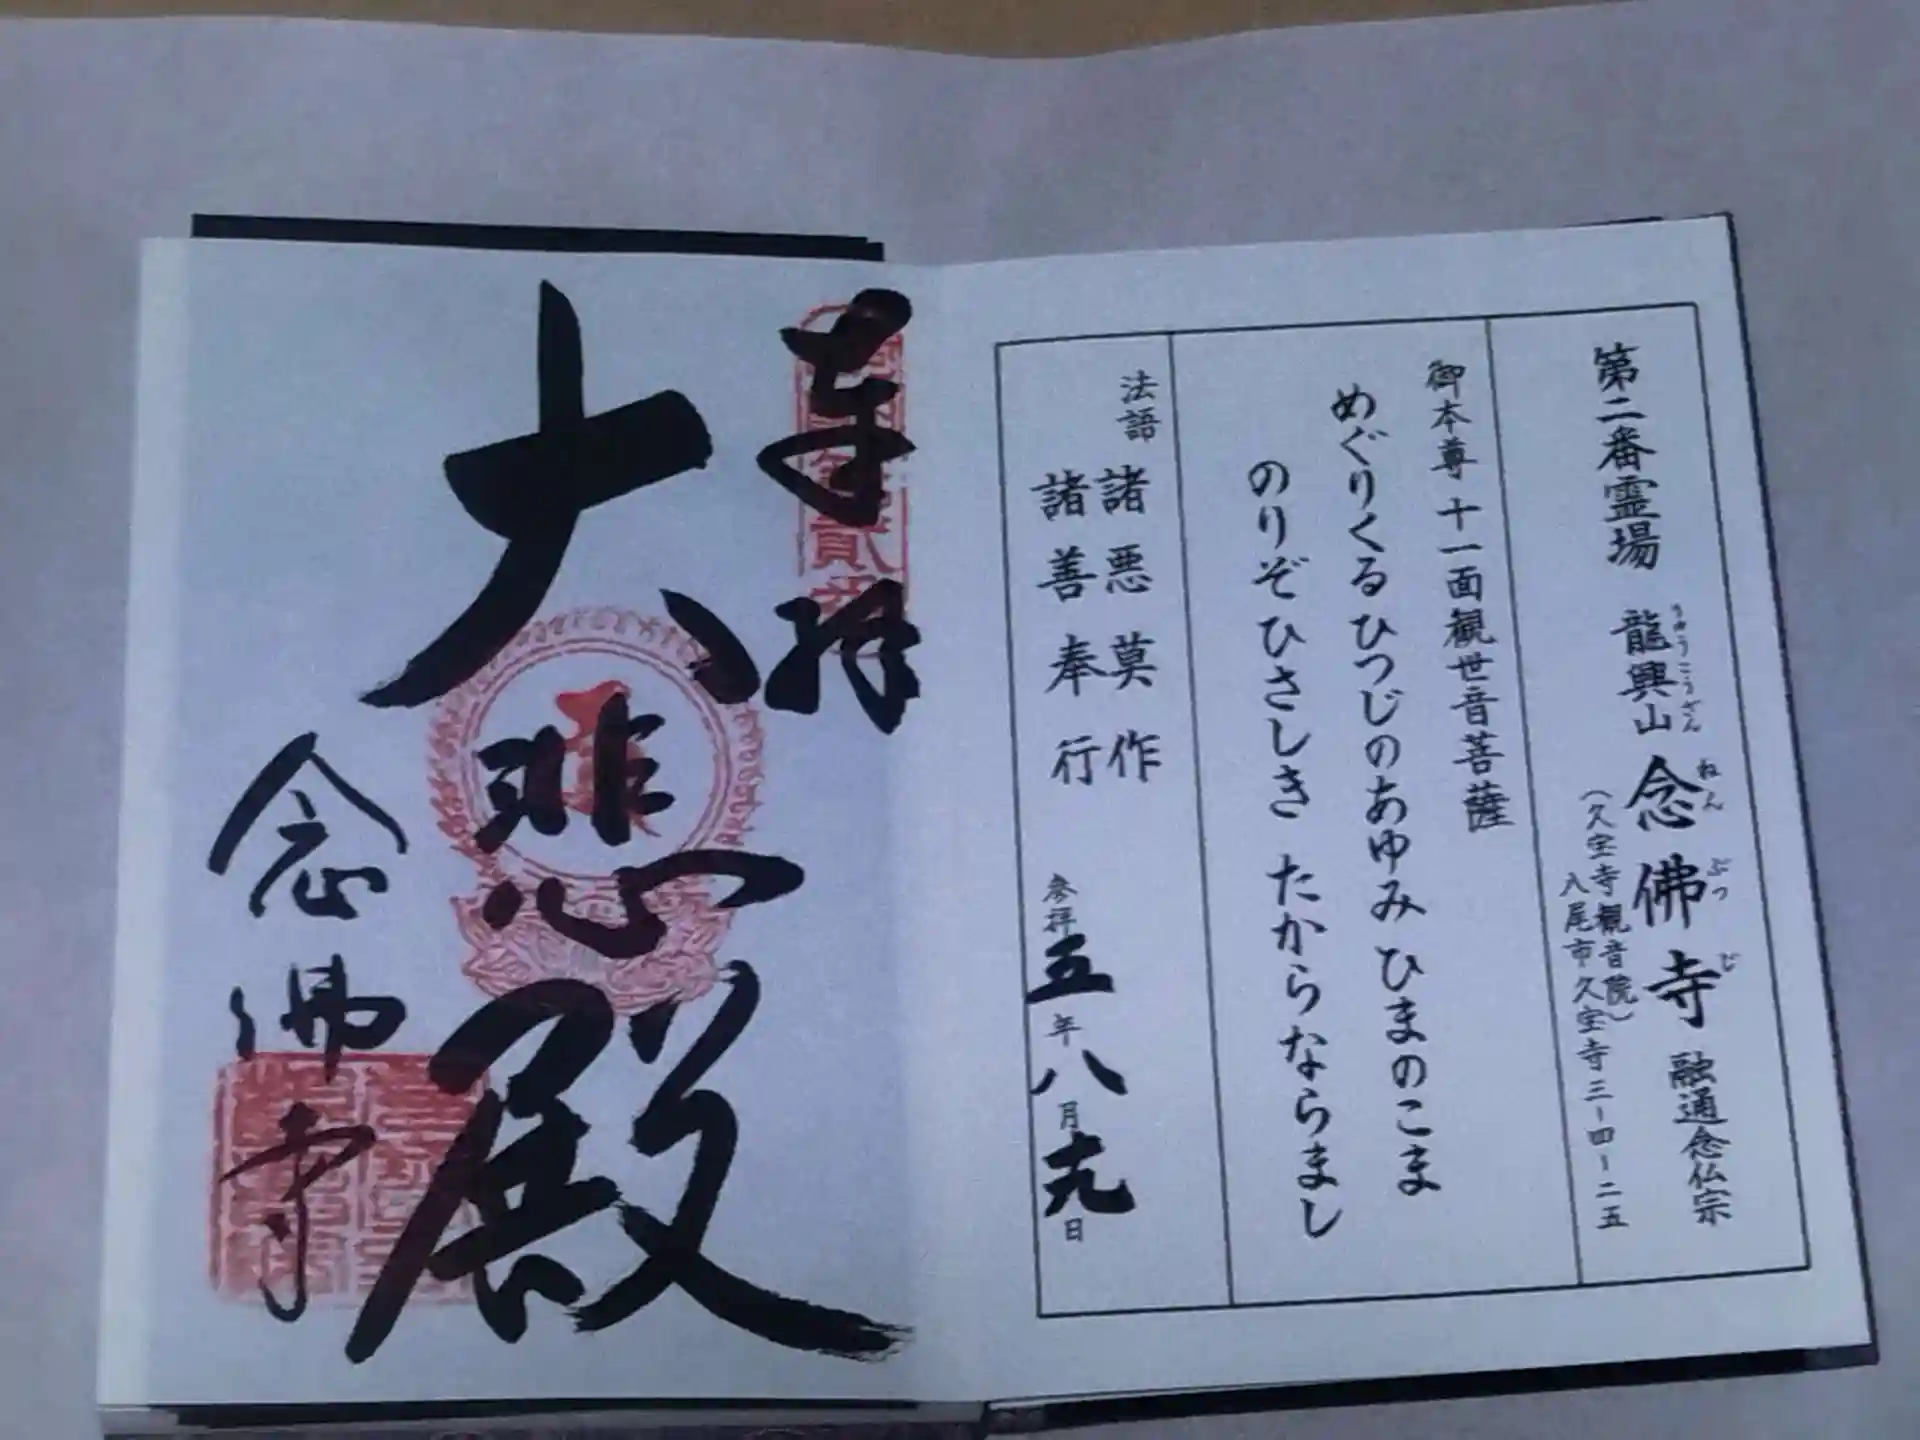 第二番霊場 龍興山 念佛寺 融通念仏宗
りゅうこうざん ねんぶつじ
(久宝寺観音院)
八尾市久宝寺三ー四ー二五
御本尊 十一面観世音菩薩
めぐりくる ひつじのあゆみ ひまのこま
のりぞ ひさしき たからならまし
法語
諸悪莫作
諸善奉行
参拝 五年八月十九日
奉拝
大悲殿
念佛寺